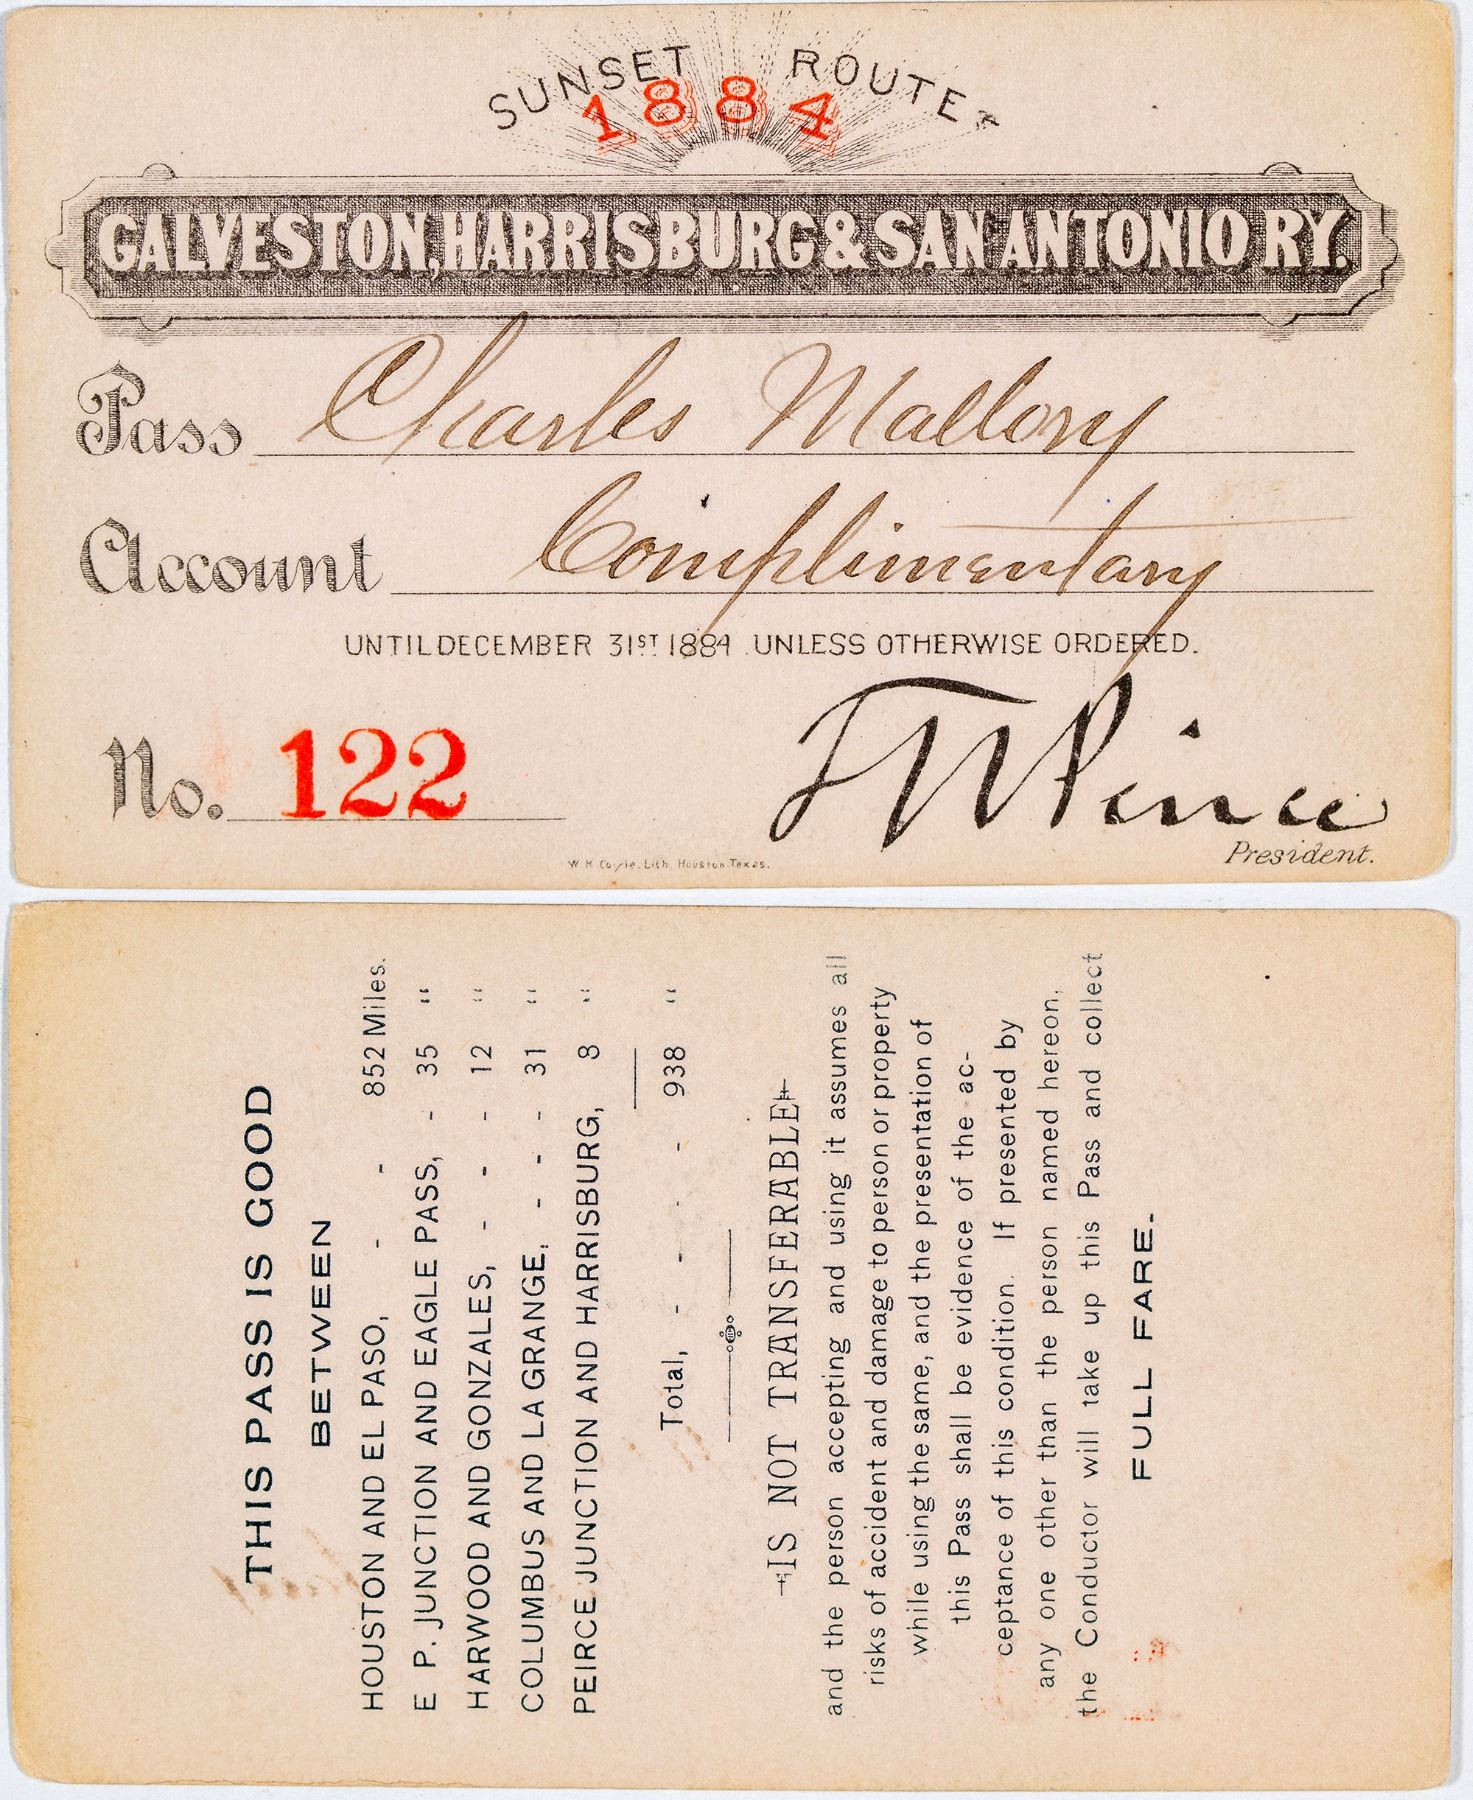 SUNSET ROUTE
1884
GALVESTON, HARRISBURG & SAN ANTONIO RY.
Pass Charles Mallory
Account Complimentary
UNTIL DECEMBER 31ST 1884 UNLESS OTHERWISE ORDERED.
No. 122
T W Peirce
President.
W H Coyle. Lith. Houston Texas.
THIS PASS IS GOOD
BETWEEN
HOUSTON AND EL PASO, - - 852 Miles.
E P. JUNCTION AND EAGLE PASS, - 35 "
HARWOOD AND GONZALES, - - - 12 "
COLUMBUS AND LA GRANGE, - - - 31 "
PEIRCE JUNCTION AND HARRISBURG, 8 "
Total, - - - - 938 "
IS NOT TRANSFERABLE
and the person accepting and using it assumes all
risks of accident and damage to person or property
while using the same, and the presentation of
this Pass shall be evidence of the ac-
ceptance of this condition. If presented by
any one other than the person named hereon,
the Conductor will take up this Pass and collect
FULL FARE.